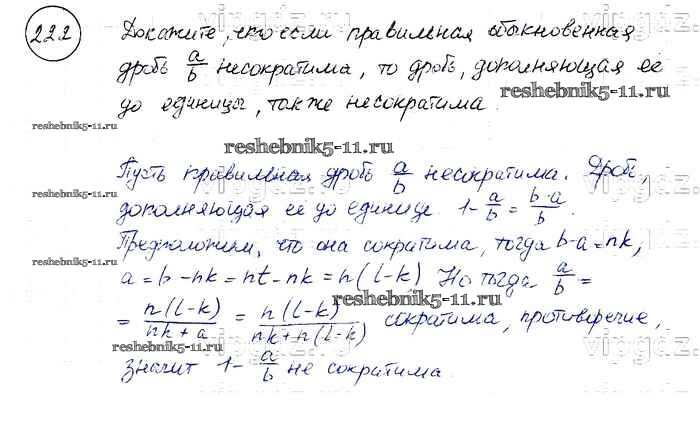 222
Докажите, что если правильная обыкновенная
дробь a/b несократима, то дробь, дополняющая ее
до единицы, также несократима.
reshebnik5-11.ru
reshebnik5-11.ru
reshebnik5-11.ru
Пусть правильная дробь a/b несократима. Дробь,
дополняющая ее до единице 1-a/b = b-a/b.
reshebnik5-11.ru
Предположим, что она сократима, тогда b-a=nk,
a=b-nk=nt-nk=n(l-k) Но тогда a/b =
reshebnik5-11.ru
= n(l-k)/nk+a = n(l-k)/nk+n(l-k) сократима, противоречие,
reshebnik5-11.ru
reshebnik5-11.ru
значит 1-a/b не сократима.
vipgdz.com